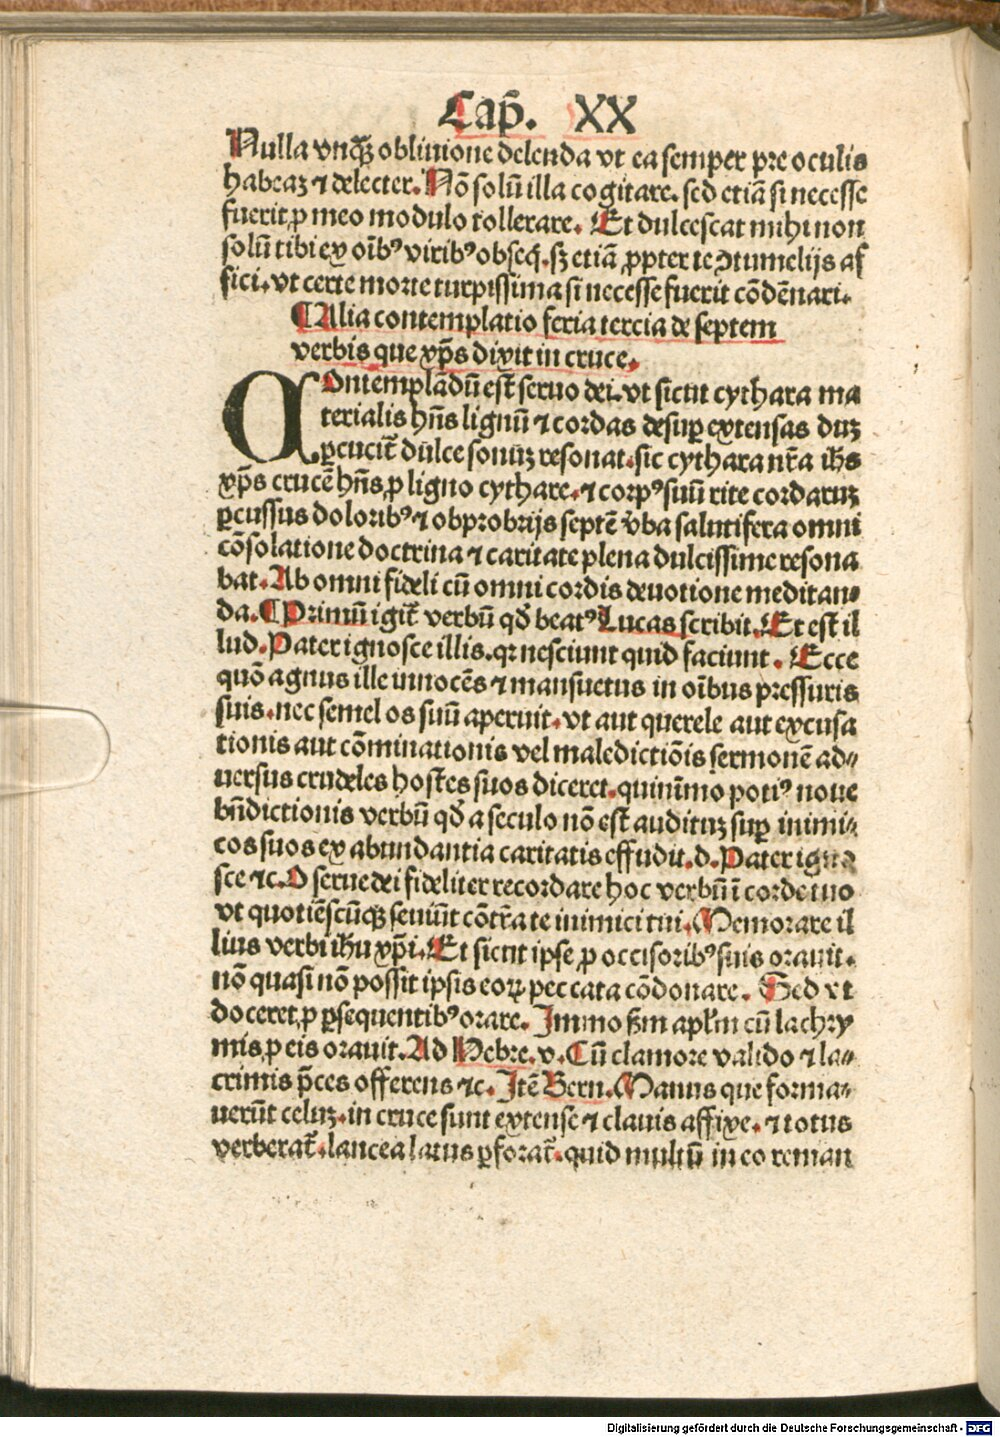 Cap̃. XX
Nulla vnq̃ꝫ obliuione delenda vt ea semper pre oculis
habeaꝫ ⁊ delecter. Nō solũ illa cogitare. sed etiã si necesse
fuerit ꝓ meo modulo tollerare. Et dulcescat mihi non
solũ tibi ex oĩbꝰ viribꝰ obseq̃. sꝫ etiã ꝓpter te ꝯtumelijs af
fici. vt certe morte turpissima si necesse fuerit cõdẽnari.
¶Alia contemplatio feria tercia de septem
verbis que xp̃s dixit in cruce.
COntemplãdũ est seruo dei. vt sicut cythara ma
terialis hñs lignũ ⁊ cordas desuꝑ extensas duꝫ
ꝑcucit̃ dulce sonuꝫ resonat. sic cythara nr̃a ihs
xp̃s crucẽ hñs ꝓ ligno cythare. ⁊ corpꝰ suũ rite cordaruꝫ
ꝑcussus doloribꝰ ⁊ obprobrijs septẽ v̓ba salutifera omni
cõsolatione doctrina ⁊ caritate plena dulcissime resona
bat. Ab omni fideli cũ omni cordis deuotione meditan⸗
da. ¶Primũ igit̃ verbũ qđ beatꝰ Lucas scribit. Et est il
lud. Pater ignosce illis. qꝛ nesciunt quid faciunt. Ecce
quõ agnus ille innocẽs ⁊ mansuetus in oĩbus pressuris
suis. nec semel os suũ aperuit. vt aut querele aut excusa
tionis aut cõminationis vel maledictiõis sermonẽ ad⸗
uersus crudeles hostes suos diceret. quinĩmo potiꝰ noue
bñdictionis verbũ qđ a seculo nõ est audituꝫ suꝑ inimi⸗
cos suos ex abundantia caritatis effudit. d. Pater igno
sce ⁊c. O serue dei fideliter recordare hoc verbũ ĩ corde tuo
vt quotiẽscũqꝫ seuiũt cõtr̃a te inimici tui. Memorare il
lius verbi ihu xp̃i. Et sicut ipse ꝓ occisoribꝰ suis orauit.
nõ quasi nõ possit ipsis eoꝝ peccata cõdonare. Sed vt
doceret ꝓ ꝑsequentibꝰ orare. Immo ßm apl̃m cũ lachry
mis ꝓ eis orauit. Ad Hebre. v. Cũ clamore valido ⁊ la⸗
crimis p̃ces offerens ⁊c. Itẽ Bern. Manus que forma⸗
uerũt celuꝫ. in cruce sunt extense ⁊ clauis affixe. ⁊ totus
verberat̃. lancea latus ꝑforat̃. quid multũ in eo reman
Digitalisierung gefördert durch die Deutsche Forschungsgemeinschaft - DFG